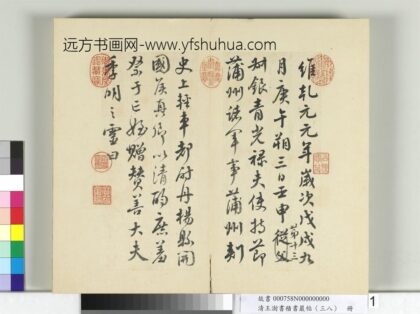 遠方书画网-www.yfshuhua.com
維乾元元年歲次戊戌九
月庚午朔三日壬申第十三從父
叔銀青光祿夫使持節
蒲州諸軍事蒲州刺
史上輕車都尉丹楊縣開
國侯真卿以清酌庶羞
祭于亡姪贈贊善大夫
季明之靈曰
故書 000758N000000000
清王澍書積書巖帖(三八) 冊
1